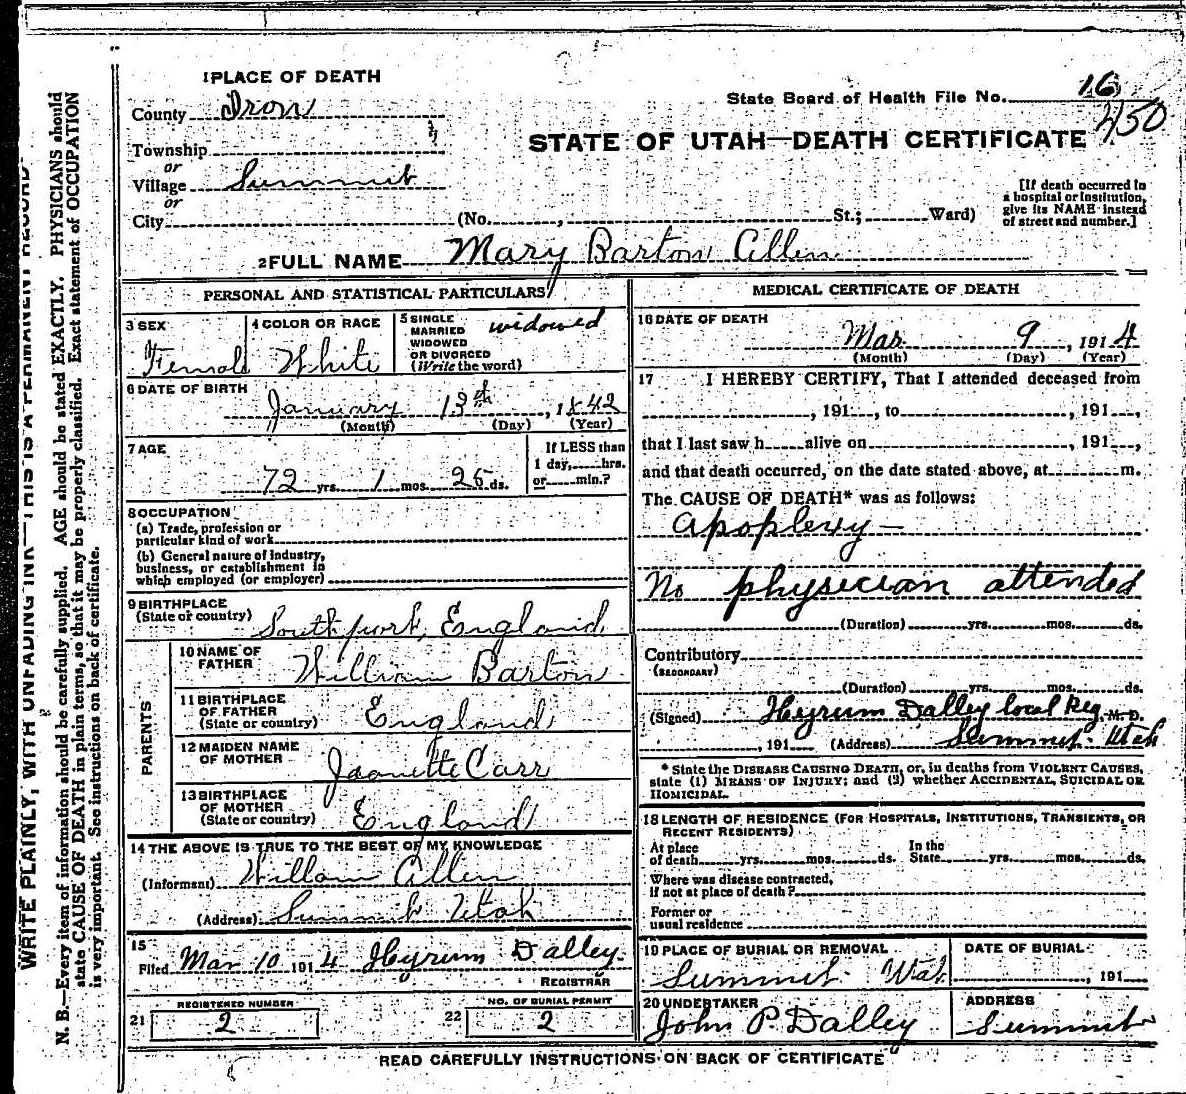 1 PLACE OF DEATH
County Iron
Township
or
Village Summit
or
City (No. , St.; Ward)
State Board of Health File No. 16
450
STATE OF UTAH—DEATH CERTIFICATE
[If death occurred in
a hospital or institution,
give its NAME instead
of street and number.]
2 FULL NAME Mary Barton Allen
PERSONAL AND STATISTICAL PARTICULARS
3 SEX
Female
4 COLOR OR RACE
White
5 SINGLE
MARRIED
WIDOWED
OR DIVORCED
(Write the word)
widowed
6 DATE OF BIRTH
January 13th, 1842
(Month) (Day) (Year)
7 AGE
72 yrs. 1 mos. 25 ds.
If LESS than
1 day, hrs.
or min.?
8 OCCUPATION
(a) Trade, profession or
particular kind of work
(b) General nature of industry,
business, or establishment in
which employed (or employer)
9 BIRTHPLACE
(State or country) Southport, England
PARENTS
10 NAME OF
FATHER William Barton
11 BIRTHPLACE
OF FATHER
(State or country) England
12 MAIDEN NAME
OF MOTHER Jaonette Carr
13 BIRTHPLACE
OF MOTHER
(State or country) England
14 THE ABOVE IS TRUE TO THE BEST OF MY KNOWLEDGE
(Informant) William Allen
(Address) Summit Utah
15
Filed Mar 10 1914 Hyrum Dalley
REGISTRAR
REGISTERED NUMBER
21 2
NO. OF BURIAL PERMIT
22 2
MEDICAL CERTIFICATE OF DEATH
16 DATE OF DEATH
Mar. 9, 1914
(Month) (Day) (Year)
17 I HEREBY CERTIFY, That I attended deceased from
, 191 , to , 191 ,
that I last saw h alive on , 191 ,
and that death occurred, on the date stated above, at m.
The CAUSE OF DEATH* was as follows:
Apoplexy—
No physician attended
(Duration) yrs. mos. ds.
Contributory
(SECONDARY)
(Duration) yrs. mos. ds.
(Signed) Hyrum Dalley local Reg. M. D.
, 191 (Address) Summit Utah
* State the DISEASE CAUSING DEATH, or, in deaths from VIOLENT CAUSES,
state (1) MEANS OF INJURY; and (2) whether ACCIDENTAL, SUICIDAL OR
HOMICIDAL.
18 LENGTH OF RESIDENCE (FOR HOSPITALS, INSTITUTIONS, TRANSIENTS, OR
RECENT RESIDENTS)
At place In the
of death yrs. mos. ds. State yrs. mos. ds.
Where was disease contracted,
if not at place of death?
Former or
usual residence
19 PLACE OF BURIAL OR REMOVAL
Summit Utah
DATE OF BURIAL
, 191
20 UNDERTAKER
John P. Dalley
ADDRESS
Summit
READ CAREFULLY INSTRUCTIONS ON BACK OF CERTIFICATE
WRITE PLAINLY, WITH UNFADING INK—THIS IS A PERMANENT RECORD
N. B.—Every item of information should be carefully supplied. AGE should be stated EXACTLY. PHYSICIANS should
state CAUSE OF DEATH in plain terms, so that it may be properly classified. Exact statement of OCCUPATION
is very important. See instructions on back of certificate.